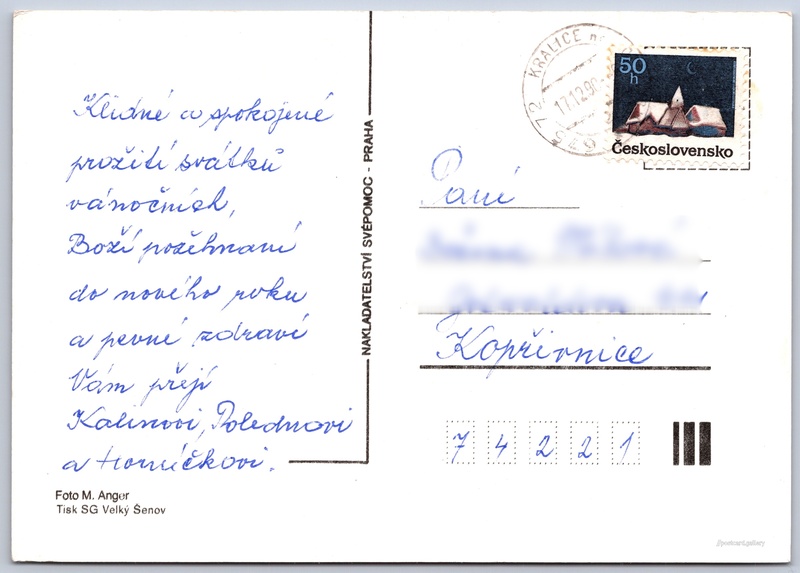 Klidné a spokojené
prožití svátků
vánočních,
Boží požehnaní
do nového roku
a pevné zdraví
Vám přejí
Kalinovi, Polednovi
a Horníčkovi.
Foto M. Anger
Tisk SG Velký Šenov
NAKLADATELSTVÍ SVÉPOMOC - PRAHA
KRALICE
17.12.90
572
50 h
Československo
Paní
Kopřivnice
74221
@postcard.gallery